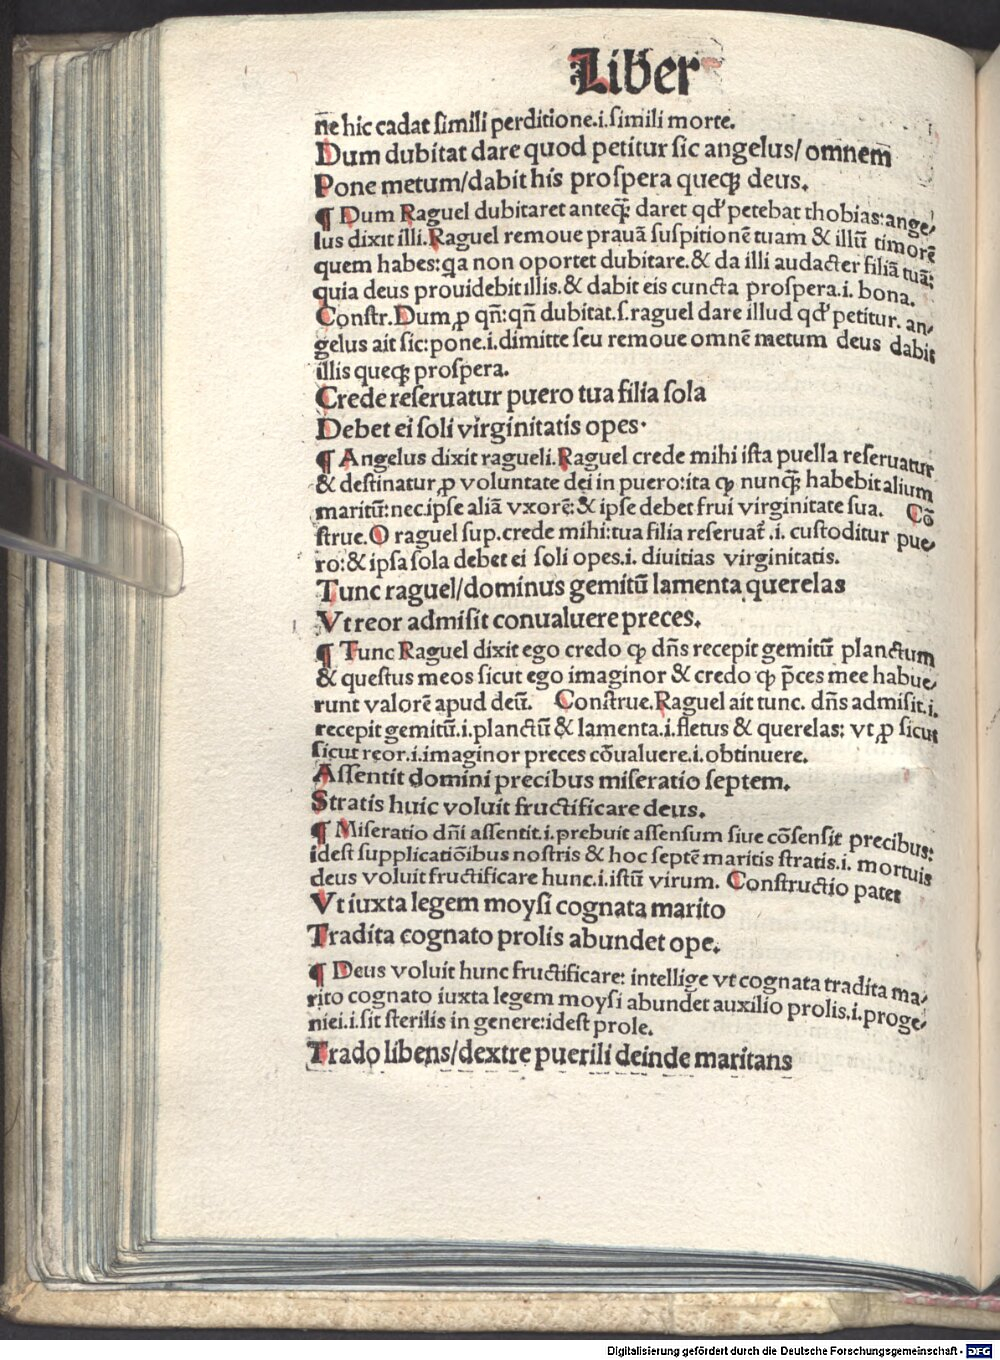 Liber
ne hic cadat ſimili perditione.i.ſimili morte.
Dum dubitat dare quod petitur ſic angelus/ omnem
Pone metum/dabit his proſpera queqꝫ deus.
¶ Dum Raguel dubitaret anteqꝫ̄ daret qd' petebat thobias:ange⸗
lus dixit illi.Raguel remoue prauā ſuſpitionē tuam & illū timorē
quem habes:qa non oportet dubitare.& da illi audacter filiā tuā:
quia deus prouidebit illis.& dabit eis cuncta proſpera.i. bona.
Conſtr.Dum ꝓ qñ:qñ dubitat.ſ.raguel dare illud qd' petitur. an⸗
gelus ait ſic:pone.i.dimitte ſeu remoue omnē metum deus dabit
illis queqꝫ proſpera.
Crede reſeruatur puero tua filia ſola
Debet ei ſoli virginitatis opes·
¶ Angelus dixit ragueli.Raguel crede mihi iſta puella reſeruatur
& deſtinatur ꝓ voluntate dei in puero:ita ꝙ nunqꝫ̄ habebit alium
maritū:nec ipſe aliā vxorē:& ipſe debet frui virginitate ſua. Cō
ſtrue.O raguel ſup.crede mihi:tua filia reſeruat̉ .i. cuſtoditur pue⸗
ro:& ipſa ſola debet ei ſoli opes.i. diuitias virginitatis.
Tunc raguel/dominus gemitū lamenta querelas
Vt reor admiſit conualuere preces.
¶ Tunc Raguel dixit ego credo ꝙ dñs recepit gemitū planctum
& queſtus meos ſicut ego imaginor & credo ꝙ p̄ces mee habue⸗
runt valorē apud deū. Conſtrue.Raguel ait tunc. dñs admiſit.i.
recepit gemitū.i.planctū & lamenta.i.fletus & querelas: vt ꝓ ſicut
ſicut reor.i.imaginor preces cōualuere.i.obtinuere.
Aſſentit domini precibus miſeratio ſeptem.
Stratis huic voluit fructificare deus.
¶ Miſeratio dñi aſſentit.i.prebuit aſſenſum ſiue cōſenſit precibus:
ideſt ſupplicatiōibus noſtris & hoc ſeptē maritis ſtratis.i. mortuis
deus voluit fructificare hunc.i.iſtū virum. Conſtructio patet
Vt iuxta legem moyſi cognata marito
Tradita cognato prolis abundet ope.
¶ Deus voluit hunc fructificare: intellige vt cognata tradita ma⸗
rito cognato iuxta legem moyſi abundet auxilio prolis.i.proge⸗
niei.i.ſit ſterilis in genere:ideſt prole.
Trado libens/dextre puerili deinde maritans
Digitalisierung gefördert durch die Deutsche Forschungsgemeinschaft - DFG